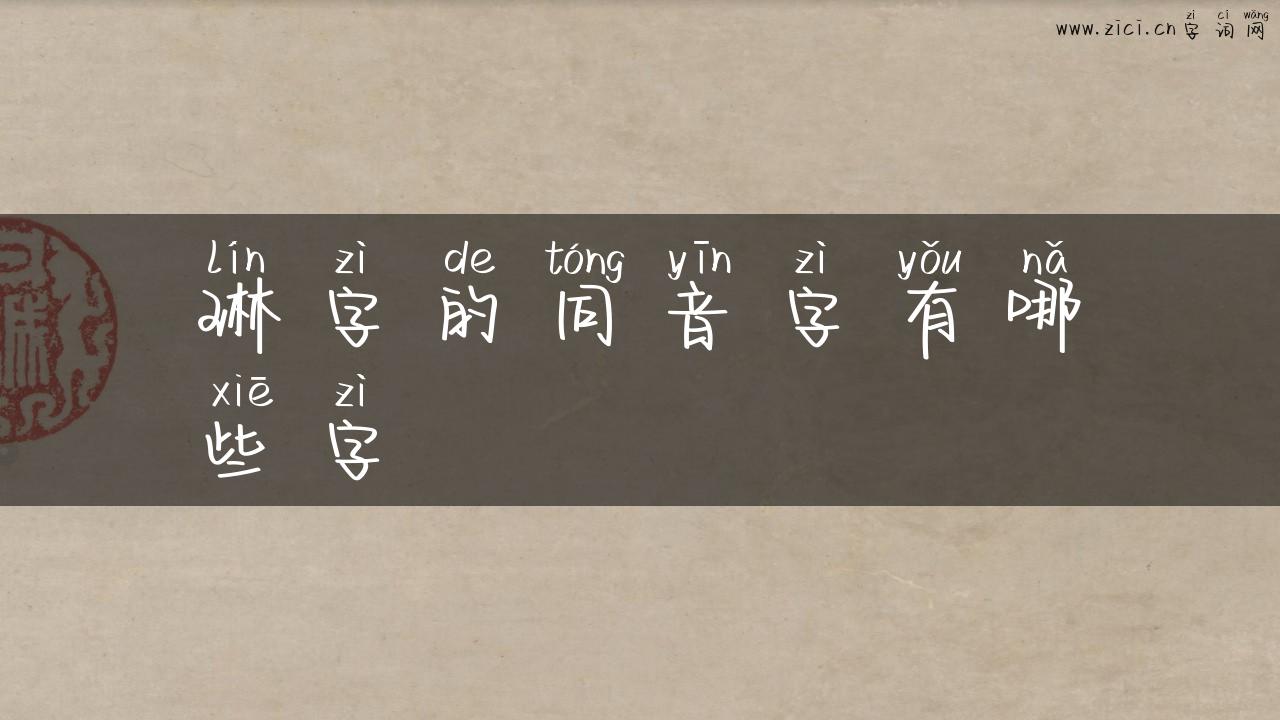 www.zici.cn 字词网
zì cí wǎng
lín zì de tóng yīn zì yǒu nǎ
琳字的同音字有哪
xiē zì
些字